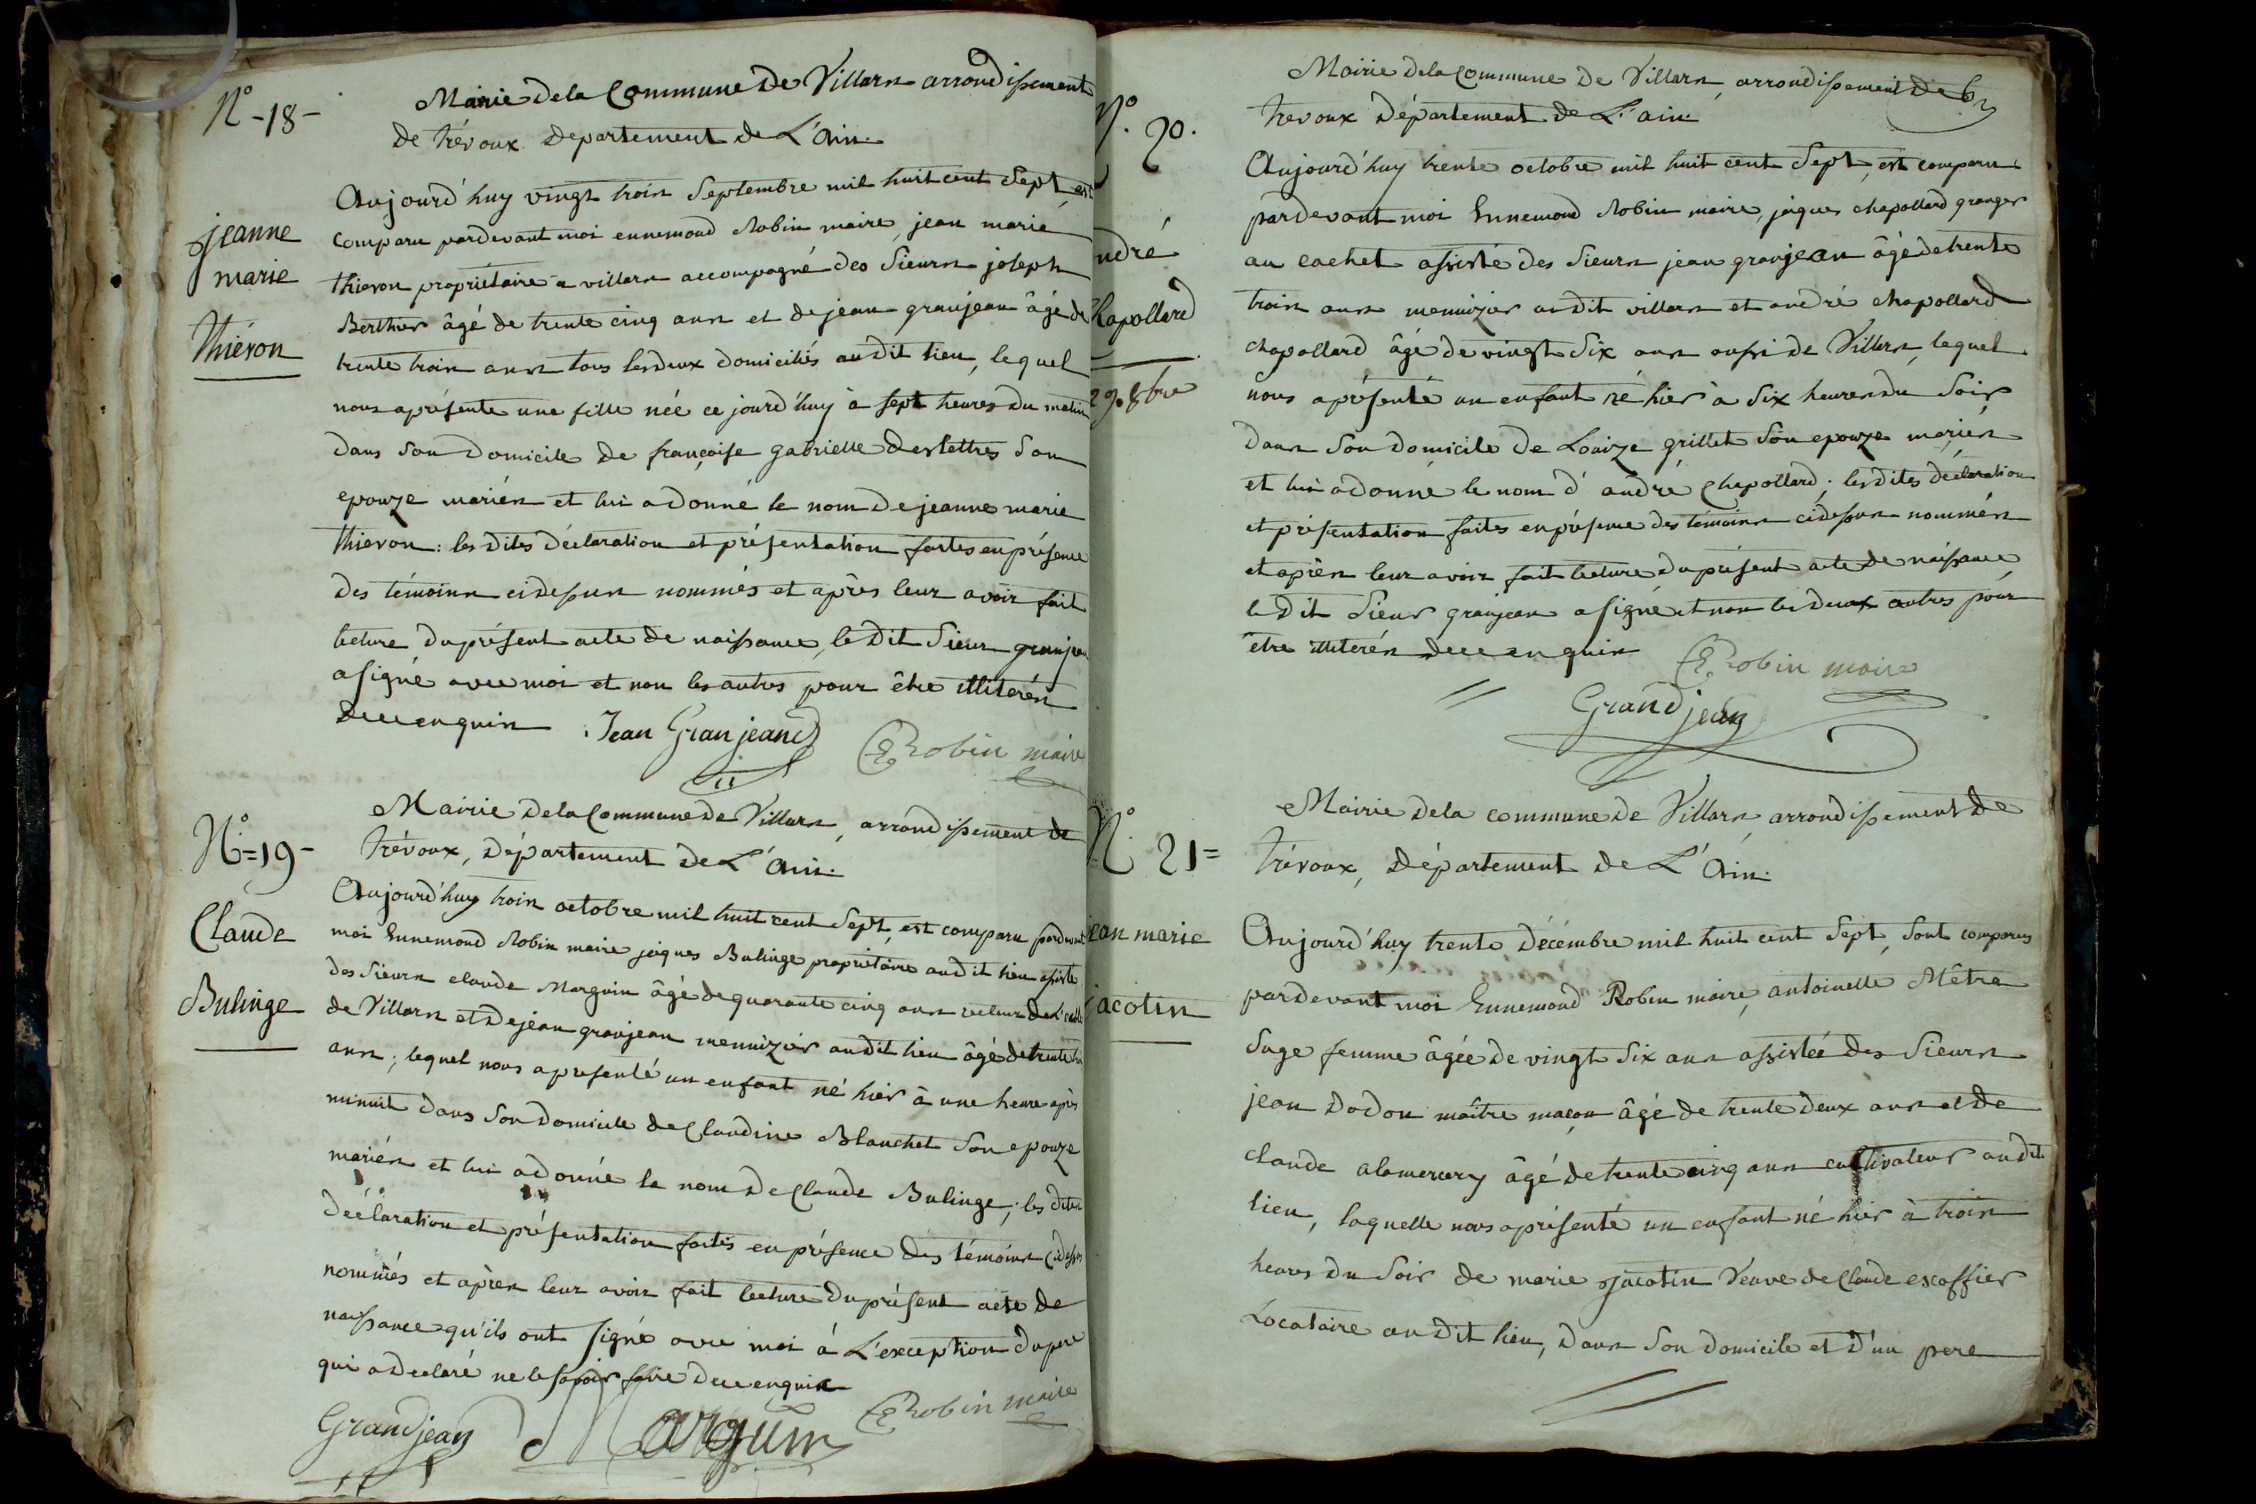 N.° -18-
Mairie de la Commune de Villars arrondissement
de trévoux département de L'Ain.
jeanne
marie
thiévon
Aujourd'huy vingt trois Septembre mil huit cent Sept, est
Comparu pardevant moi ennemond Robin maire, jean marie
thievon propriétaire a villars accompagné des Sieurs joseph
Berthier âgé de trente cinq ans et de jean granjean âgé de
trente trois ans tous les deux domiciliés au dit lieu, lequel
nous a présenté une fille née ce jourd'huy à sept heures du matin
dans son domicile de françoise gabrielle deslettres Son
epouze mariés et lui a donné le nom de jeanne marie
thievon: les dites déclaration et présentation faites en présence
des témoins cidessus nommés et après leur avoir fait
lecture du présent acte de naissance, le dit Sieur granjean
a signé avec moi et non les autres pour être illiterés
de ce enquis Jean Granjean E Robin maire
N.° =19-
Mairie de la Commune de Villars, arrondissement de
trévoux, département de L'Ain.
Claude
Bulinge
Aujourd'huy trois octobre mil huit cent Sept, est comparu pardevant
moi Ennemond Robin maire jaques Bulinge propriétaire au dit lieu assisté
des Sieurs claude Marguin âgé de quarante cinq ans
de Villars et de jean granjean menuizier au dit lieu âgé de trente
ans; lequel nous a presenté un enfant né hier à une heure après
minuit dans son domicile de Claudine Blanchet son epouze
mariés et lui a donné le nom de Claude Bulinge; les dites
déclaration et présentation faites en présence des témoins cidessus
nommés et après leur avoir fait lecture du présent acte de
naissance qu'ils ont signé avec moi à L'exception du pere
qui a declaré ne le savoir faire de ce enquis
Grandjean Marguin E Robin maire
N.° 20.
Mairie de la Commune de Villars, arrondissement de
trevoux Département de L'ain.
ndré
Chapollard
29. 8bre
Aujourd'huy trente octobre mil huit cent Sept, est comparu
pardevant moi Ennemond Robin maire, jaques chapollard granger
au cachet assisté des Sieurs jean granjean âgé de trente
trois ans menuizier au dit villars et andré chapollard
chapollard âgé de vingt Six ans aussi de Villars, lequel
nous a présenté un enfant né hier à Six heures du Soir
dans Son domicile de Louize grillet Son epouze mariés
et lui a donné le nom d'andré Chapollard; les dites déclaration
et présentation faites en présence des témoins cidessus nommés
et après leur avoir fait lecture du présent acte de naissance
le dit Sieur granjean a signé et non les deux autres pour
être illiterés de ce enquis E Robin maire
Grandjean
N.° 21=
Mairie de la commune de Villars, arrondissement de
trévoux, Département de L'Ain.
jean marie
jacotin
Aujourd'huy trente Décembre mil huit cent Sept, Sont comparus
pardevant moi Ennemond Robin maire, antoinette Mêtra
Sage femme âgée de vingt Six ans assistée des Sieurs
jean Dodon maître maçon âgé de trente deux ans et de
claude alamercery âgé de trente cinq ans cultivateur au dit
lieu, laquelle nous a présenté un enfant né hier à trois
heures du Soir de marie jacotin Veuve de Claude escoffier
Locataire au dit lieu, dans Son domicile et d'un pere